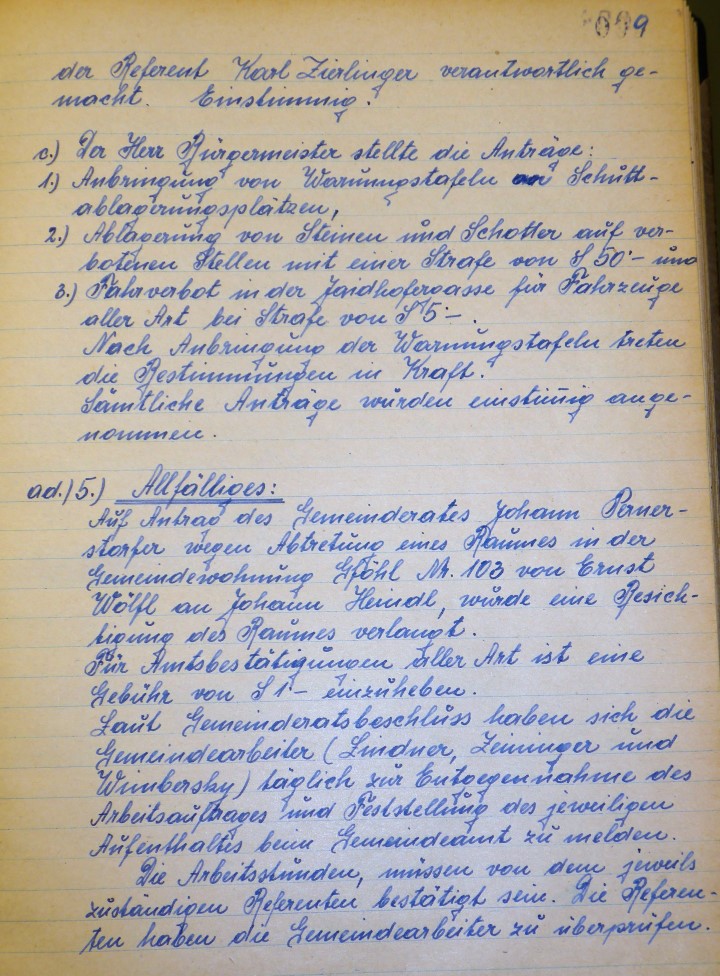 009
der Referent Karl Zierlinger verantwortlich ge-
macht. Einstimmig.
c.) Der Herr Bürgermeister stellte die Anträge:
1.) Anbringung von Warnungstafeln an Schutt-
ablagerungsplätzen,
2.) Ablagerung von Steinen und Schotter auf ver-
botenen Stellen mit einer Strafe von S 50·– und
3.) Fahrverbot in der Jaidhofergasse für Fahrzeuge
aller Art bei Strafe von S 5·–.
Nach Anbringung der Warnungstafeln treten
die Bestimmungen in Kraft.
Sämtliche Anträge wurden einstim̅ig ange-
nommen.
ad.) 5.) Allfälliges:
Auf Antrag des Gemeinderates Johann Perner-
storfer wegen Abtretung eines Raumes in der
Gemeindewohnung Gföhl Nr. 103 von Ernst
Wölfl an Johann Heindl, wurde eine Besich-
tigung des Raumes verlangt.
Für Amtsbestätigungen aller Art ist eine
Gebühr von S 1·– einzuheben.
Laut Gemeinderatsbeschluss haben sich die
Gemeindearbeiter (Lindner, Zeininger und
Wimbersky) täglich zur Entgegennahme des
Arbeitsauftrages und Feststellung des jeweiligen
Aufenthaltes beim Gemeindeamt zu melden.
Die Arbeitsstunden, müssen von dem jeweils
zuständigen Referenten bestätigt sein. Die Referen-
ten haben die Gemeindearbeiter zu überprüfen.